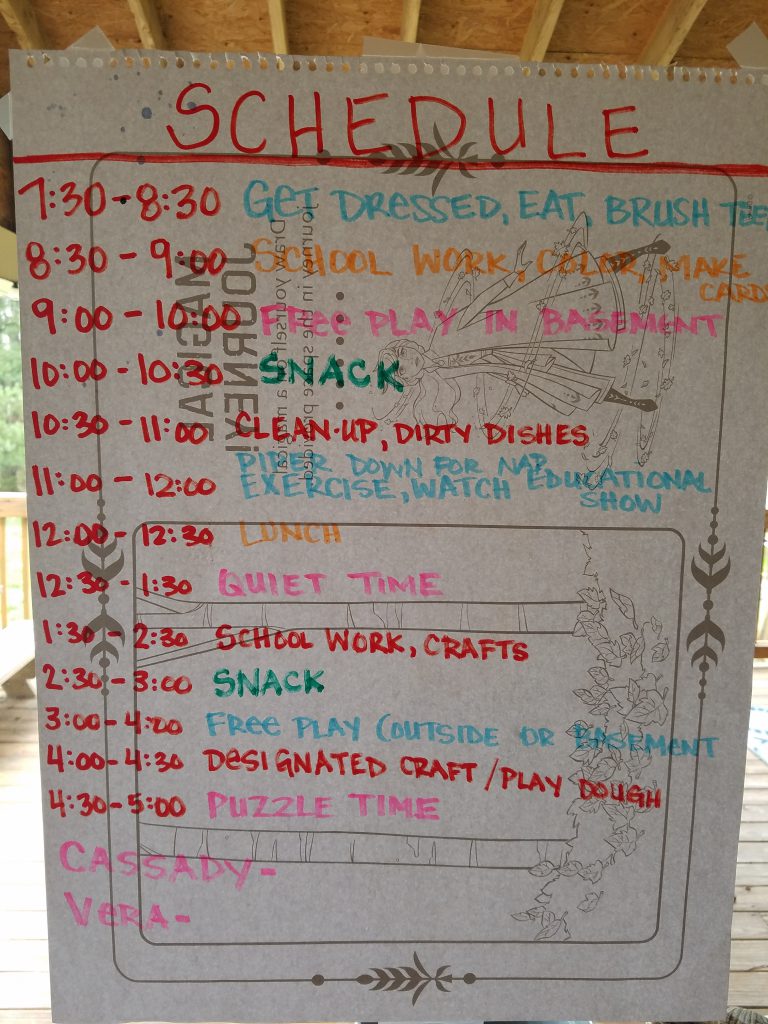 SCHEDULE
7:30 - 8:30 GET DRESSED, EAT, BRUSH TEE
8:30 - 9:00 SCHOOL WORK, COLOR, MAKE
CARDS
9:00 - 10:00 FREE PLAY IN BASEMENT
10:00 - 10:30 SNACK
10:30 - 11:00 CLEAN-UP, DIRTY DISHES
PIPER DOWN FOR NAP
11:00 - 12:00 EXERCISE, WATCH EDUCATIONAL
SHOW
12:00 - 12:30 LUNCH
12:30 - 1:30 QUIET TIME
1:30 - 2:30 SCHOOL WORK, CRAFTS
2:30 - 3:00 SNACK
3:00 - 4:00 FREE PLAY (OUTSIDE OR BASEMENT
4:00 - 4:30 DESIGNATED CRAFT / PLAY DOUGH
4:30 - 5:00 PUZZLE TIME
CASSADY -
VERA -
MAGICAL
JOURNEY!
Draw yourself in a magical
journey in the space provided